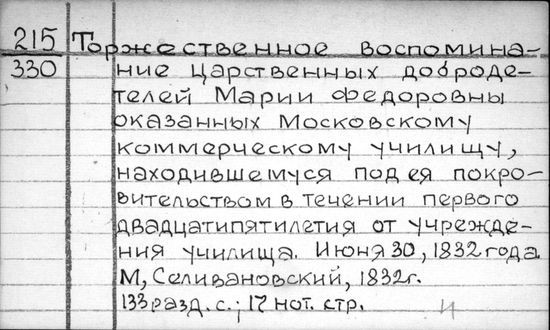 215 Торжественное воспомина-
330 ние царственных доброде-
телей Марии Федоровны
оказанных Московскому
коммерческому училищу,
находившемуся под ея покро-
вительством в течении первого
двадцатипятилетия от учрежде-
ния училища. Июня 30, 1832 года
М, Селивановский, 1832 г.
133 разд. с.; 17 нот. стр. И